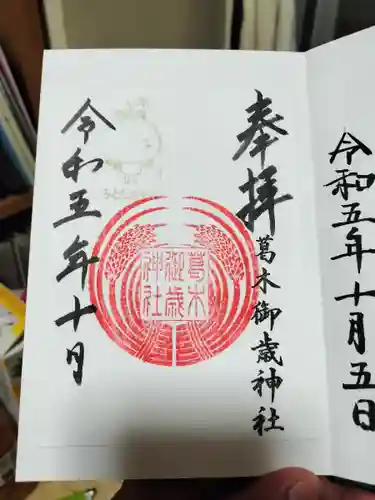 奉拝
葛木御歳神社
葛木
御歳
神社
令和五年十月
令和五年十月五日